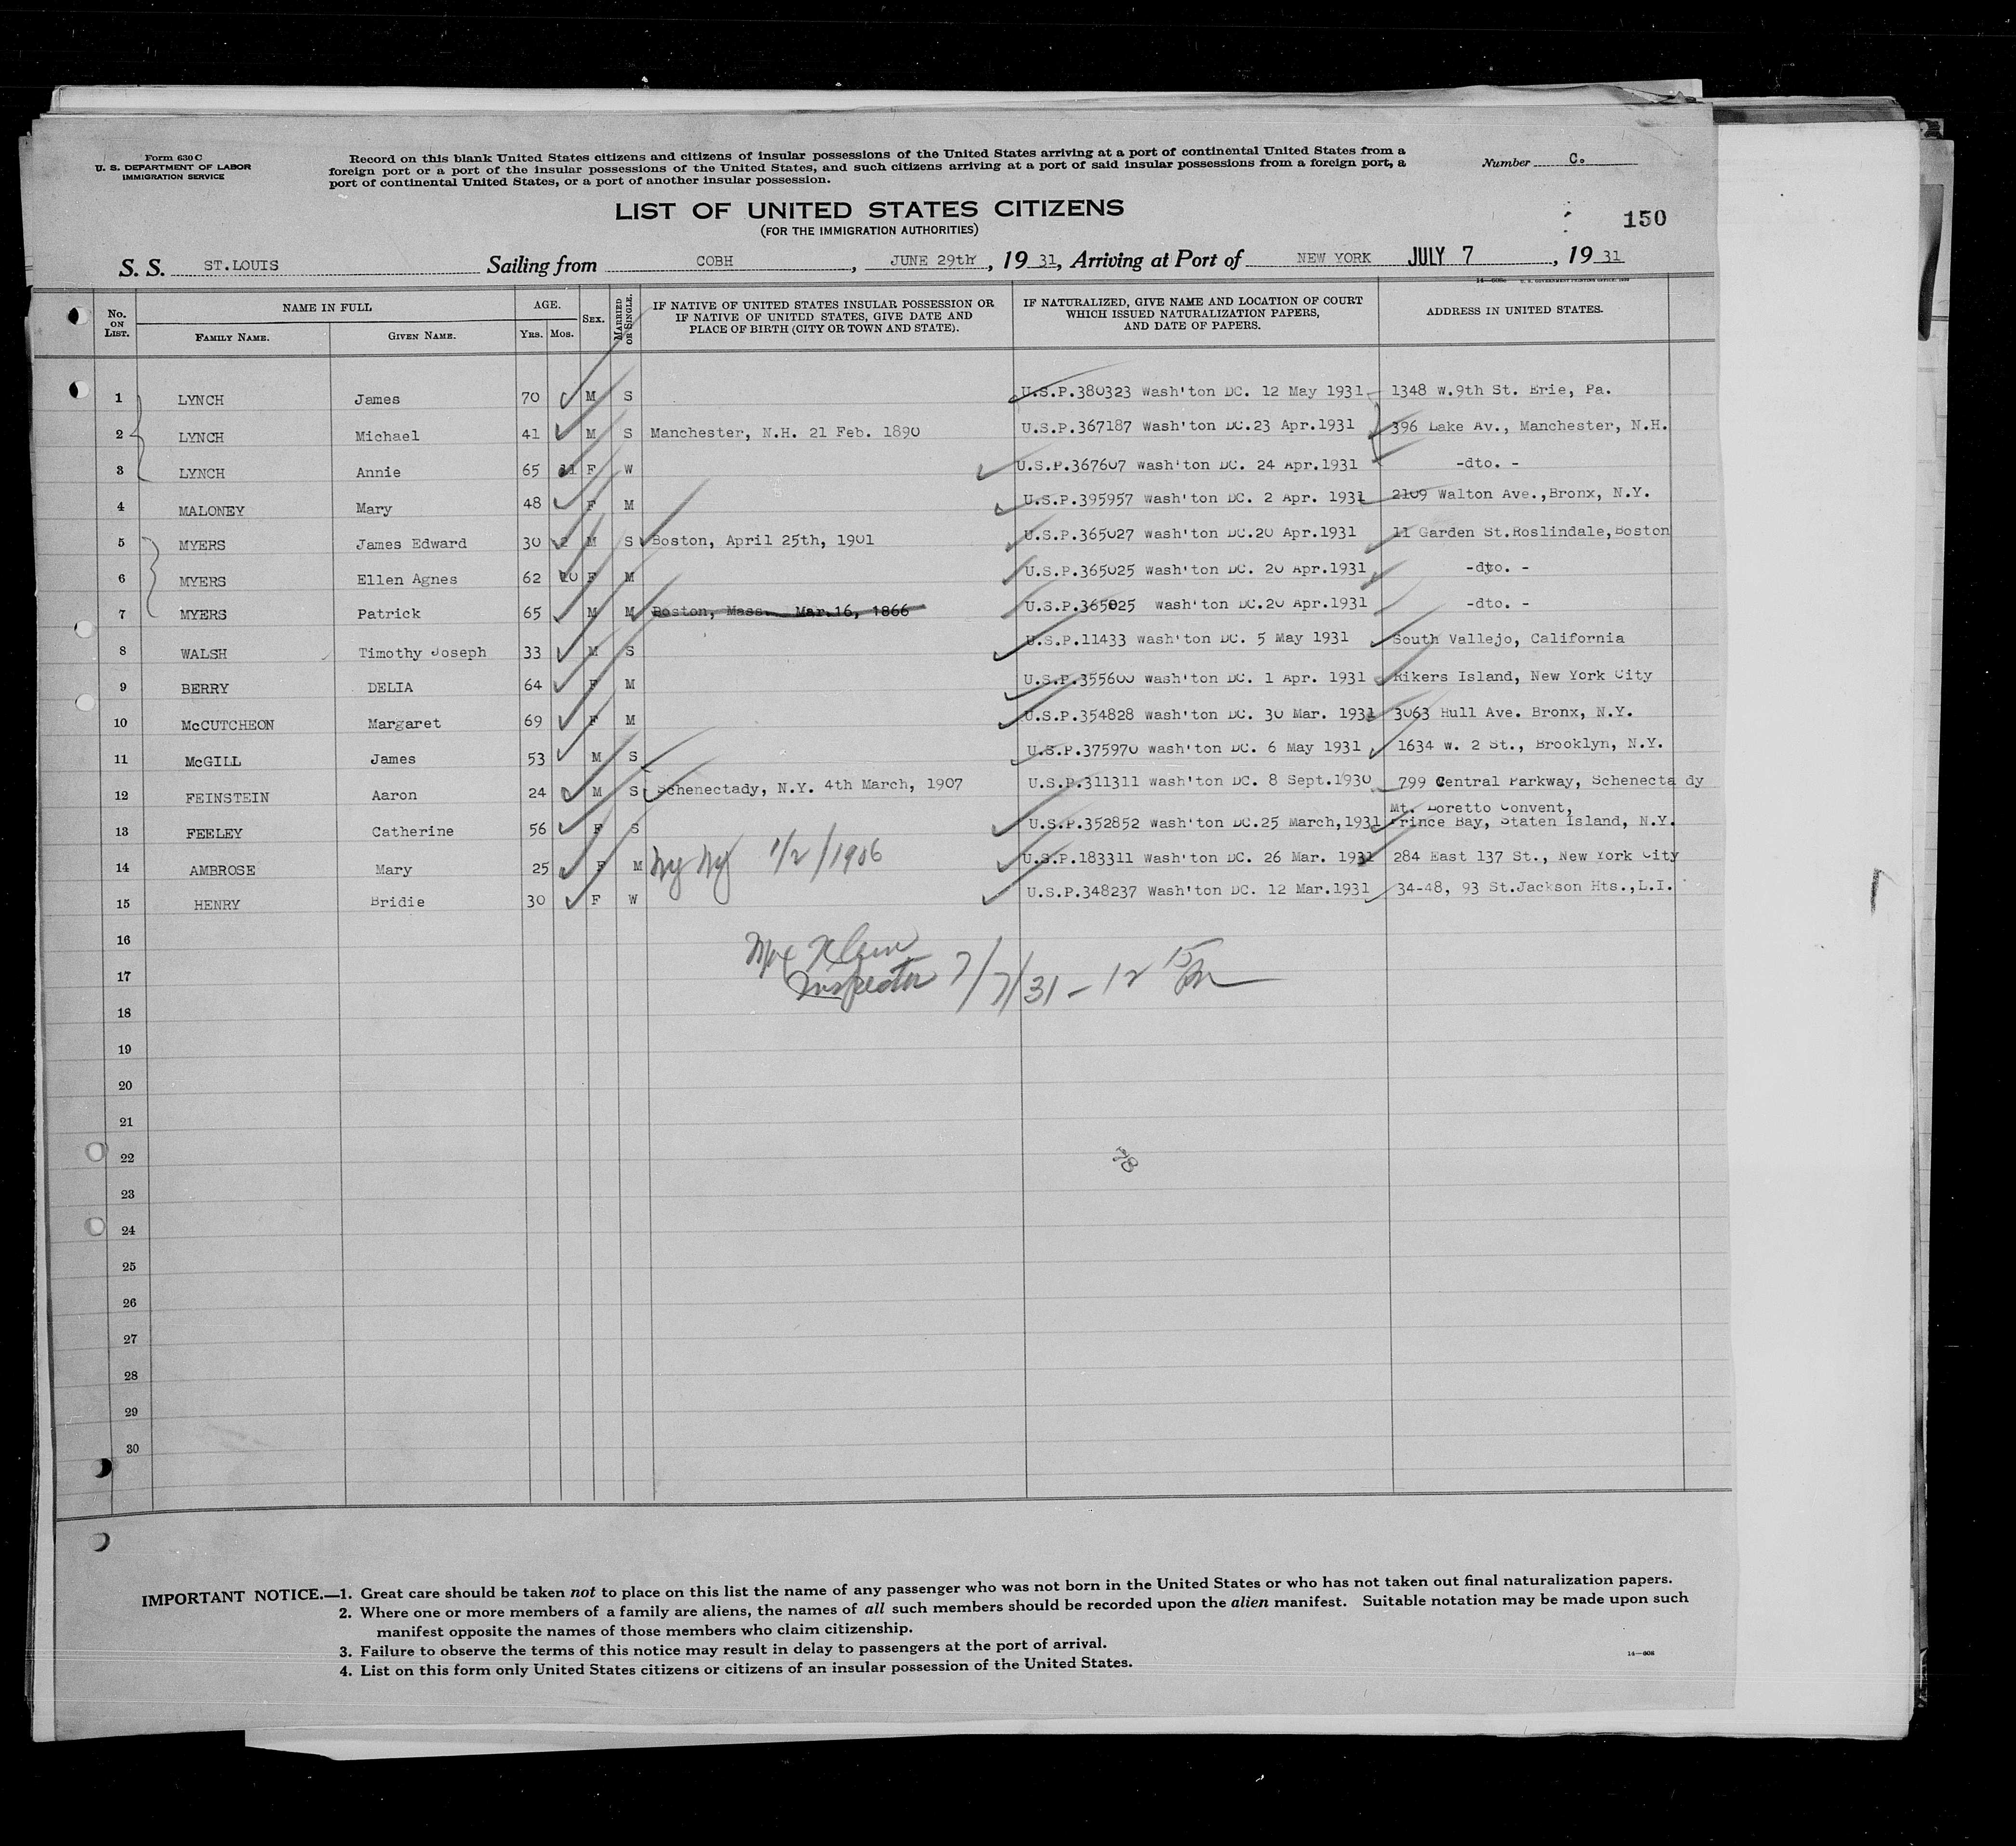 Form 630 C
U. S. DEPARTMENT OF LABOR
IMMIGRATION SERVICE
Record on this blank United States citizens and citizens of insular possessions of the United States arriving at a port of continental United States from a
foreign port or a port of the insular possessions of the United States, and such citizens arriving at a port of said insular possessions from a foreign port, a
port of continental United States, or a port of another insular possession.
Number C.
LIST OF UNITED STATES CITIZENS
(FOR THE IMMIGRATION AUTHORITIES)
150
S. S. ST.LOUIS Sailing from COBH, JUNE 29th, 19 31, Arriving at Port of NEW YORK JULY 7, 19 31
No. ON LIST. NAME IN FULL AGE. SEX. MARRIED OR SINGLE. IF NATIVE OF UNITED STATES INSULAR POSSESSION OR IF NATIVE OF UNITED STATES, GIVE DATE AND PLACE OF BIRTH (CITY OR TOWN AND STATE). IF NATURALIZED, GIVE NAME AND LOCATION OF COURT WHICH ISSUED NATURALIZATION PAPERS, AND DATE OF PAPERS. ADDRESS IN UNITED STATES.
FAMILY NAME. GIVEN NAME. Yrs. Mos.
1 LYNCH James 70 M S U.S.P.380323 Wash'ton DC. 12 May 1931 1348 W.9th St. Erie, Pa.
2 LYNCH Michael 41 M S Manchester, N.H. 21 Feb. 1890 U.S.P.367187 Wash'ton DC.23 Apr.1931 396 Lake Av., Manchester, N.H.
3 LYNCH Annie 65 11 F W U.S.P.367607 Wash'ton DC. 24 Apr.1931 -dto. -
4 MALONEY Mary 48 F M U.S.P.395957 Wash'ton DC. 2 Apr. 1931 2109 Walton Ave.,Bronx, N.Y.
5 MYERS James Edward 30 2 M S Boston, April 25th, 1901 U.S.P.365027 Wash'ton DC.20 Apr.1931 11 Garden St.Roslindale,Boston
6 MYERS Ellen Agnes 62 10 F M U.S.P.365025 Wash'ton DC. 20 Apr.1931 -dto. -
7 MYERS Patrick 65 M M Boston, Mass. Mar.16, 1866 U.S.P.365025 Wash'ton DC.20 Apr.1931 -dto. -
8 WALSH Timothy Joseph 33 M S U.S.P.11433 Wash'ton DC. 5 May 1931 South Vallejo, California
9 BERRY DELIA 64 F M U.S.P.355600 Wash'ton DC. 1 Apr. 1931 Rikers Island, New York City
10 McCUTCHEON Margaret 69 F M U.S.P.354828 Wash'ton DC. 30 Mar. 1931 3063 Hull Ave. Bronx, N.Y.
11 McGILL James 53 M S U.S.P.375970 Wash'ton DC. 6 May 1931 1634 W. 2 St., Brooklyn, N.Y.
12 FEINSTEIN Aaron 24 M S Schenectady, N.Y. 4th March, 1907 U.S.P.311311 Wash'ton DC. 8 Sept.1930 799 Central Parkway, Schenecta dy
13 FEELEY Catherine 56 F S U.S.P.352852 Wash'ton DC.25 March,1931 Mt. Loretto Convent,
Prince Bay, Staten Island, N.Y.
14 AMBROSE Mary 25 F M Ny Ny 1/2/1906 U.S.P.183311 Wash'ton DC. 26 Mar. 1931 284 East 137 St., New York City
15 HENRY Bridie 30 F W U.S.P.348237 Wash'ton DC. 12 Mar.1931 34-48, 93 St.Jackson Hts.,L.I.
16
Max Klein
17 Inspector 7/7/31 - 12 15 Pm
18
19
20
21
22 78
23
24
25
26
27
28
29
30
IMPORTANT NOTICE.—1. Great care should be taken not to place on this list the name of any passenger who was not born in the United States or who has not taken out final naturalization papers.
2. Where one or more members of a family are aliens, the names of all such members should be recorded upon the alien manifest. Suitable notation may be made upon such
manifest opposite the names of those members who claim citizenship.
3. Failure to observe the terms of this notice may result in delay to passengers at the port of arrival.
4. List on this form only United States citizens or citizens of an insular possession of the United States.
14—608